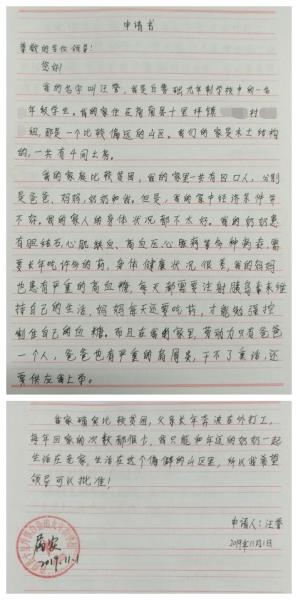 申请书
尊敬的各位领导:
您好!
我的名字叫汪睿,我是自
九年制学校中的一名
年级学生。我的家住在
县十里坪镇
村
组,那是一个比较偏远的山区。我们的家是木土结构
的,一共有4间土房。
我的家庭比较贫困,我的家里一共有四口人,分别
是爸爸、妈妈、奶奶和我。但是,我的家中经济条件并
不好。我的家人的身体状况都不太好。我的奶奶患
有胆结石、心肌缺血、高血压、心脏病等各种病症,需
要长年吃许多的药,身体健康状况很差。我的妈妈
也患有严重的高血糖,每天都需要注射胰岛素来维
持自己的生活,妈妈每天还要吃药,才能勉强控
制住自己的血糖。而且在我的家里,劳动力只有爸爸
一个人,爸爸也有严重的肩周炎,干不了重活,还
要供在我上学。
我家确实比较贫困,父亲长年奔波在外打工,
每年回家的次数都很少,我只能和年迈的奶奶一起
生活在老家,生活在这个偏僻的山区里,所以我希望
领导可以批准!
申请人:汪睿
2019年11月1日
属实
2019.11.1